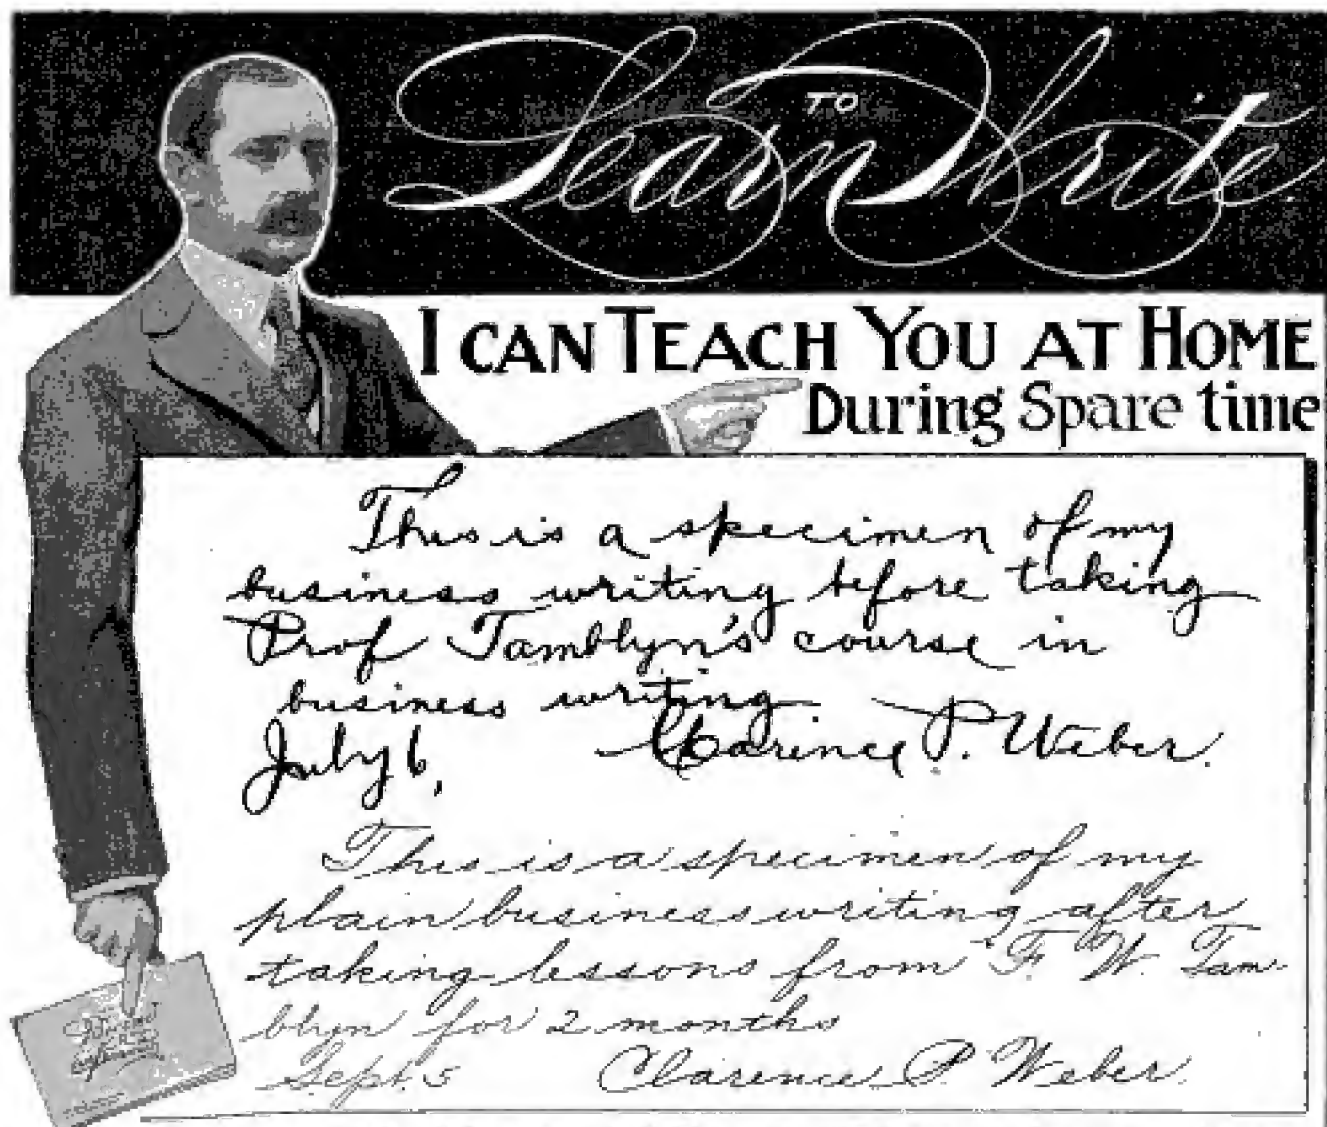 Learn TO Write
I CAN TEACH YOU AT HOME
During Spare time
This is a specimen of my
business writing before taking
Prof Tamblyn's course in
business writing
July 6, Clarence P. Weber.
This is a specimen of my
plain business writing after
taking lessons from F. W. Tam-
blyn for 2 months
Sept. 5 Clarence P. Weber.